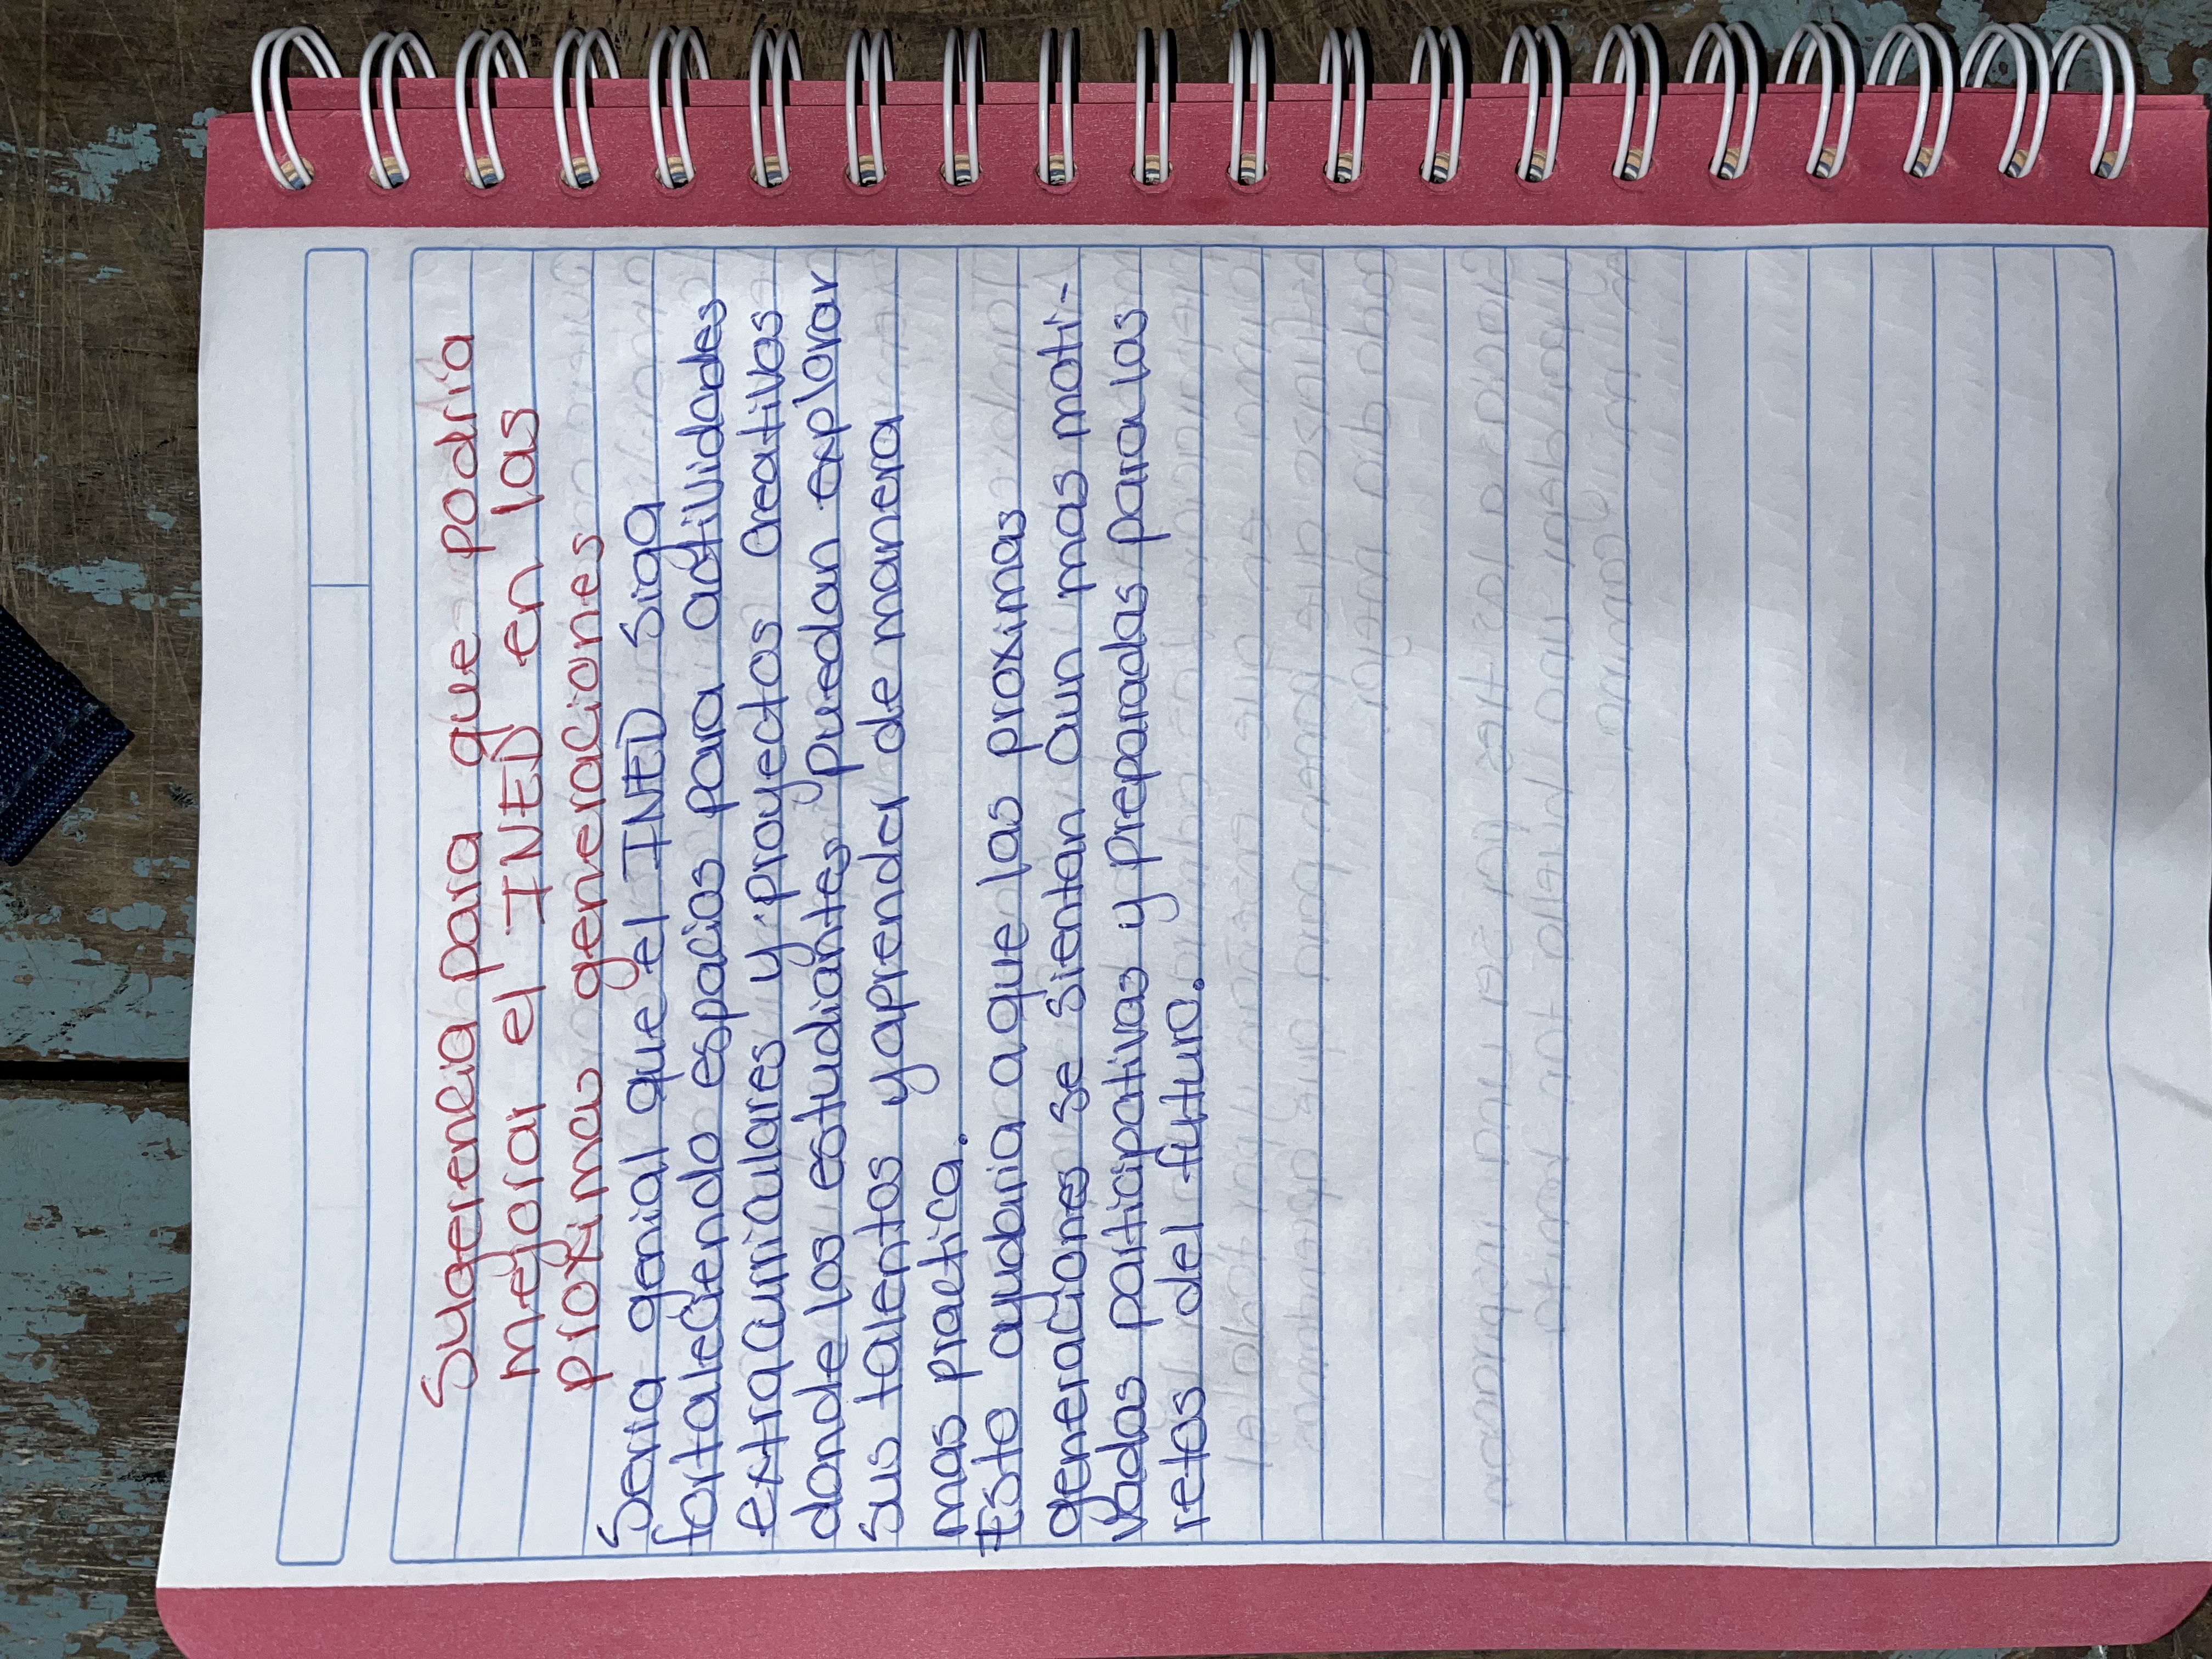 Sugerencia para que podria
mejorar el INED en las
proximas generaciones
Seria genial que el INED siga
fortaleciendo espacios para actividades
extracurriculares y proyectos creativos
donde los estudiantes puedan explorar
sus talentos y aprender de manera
mas practica.
Esto ayudaria a que las proximas
generaciones se sientan aun mas moti-
vadas participativas y preparadas para los
retos del futuro.